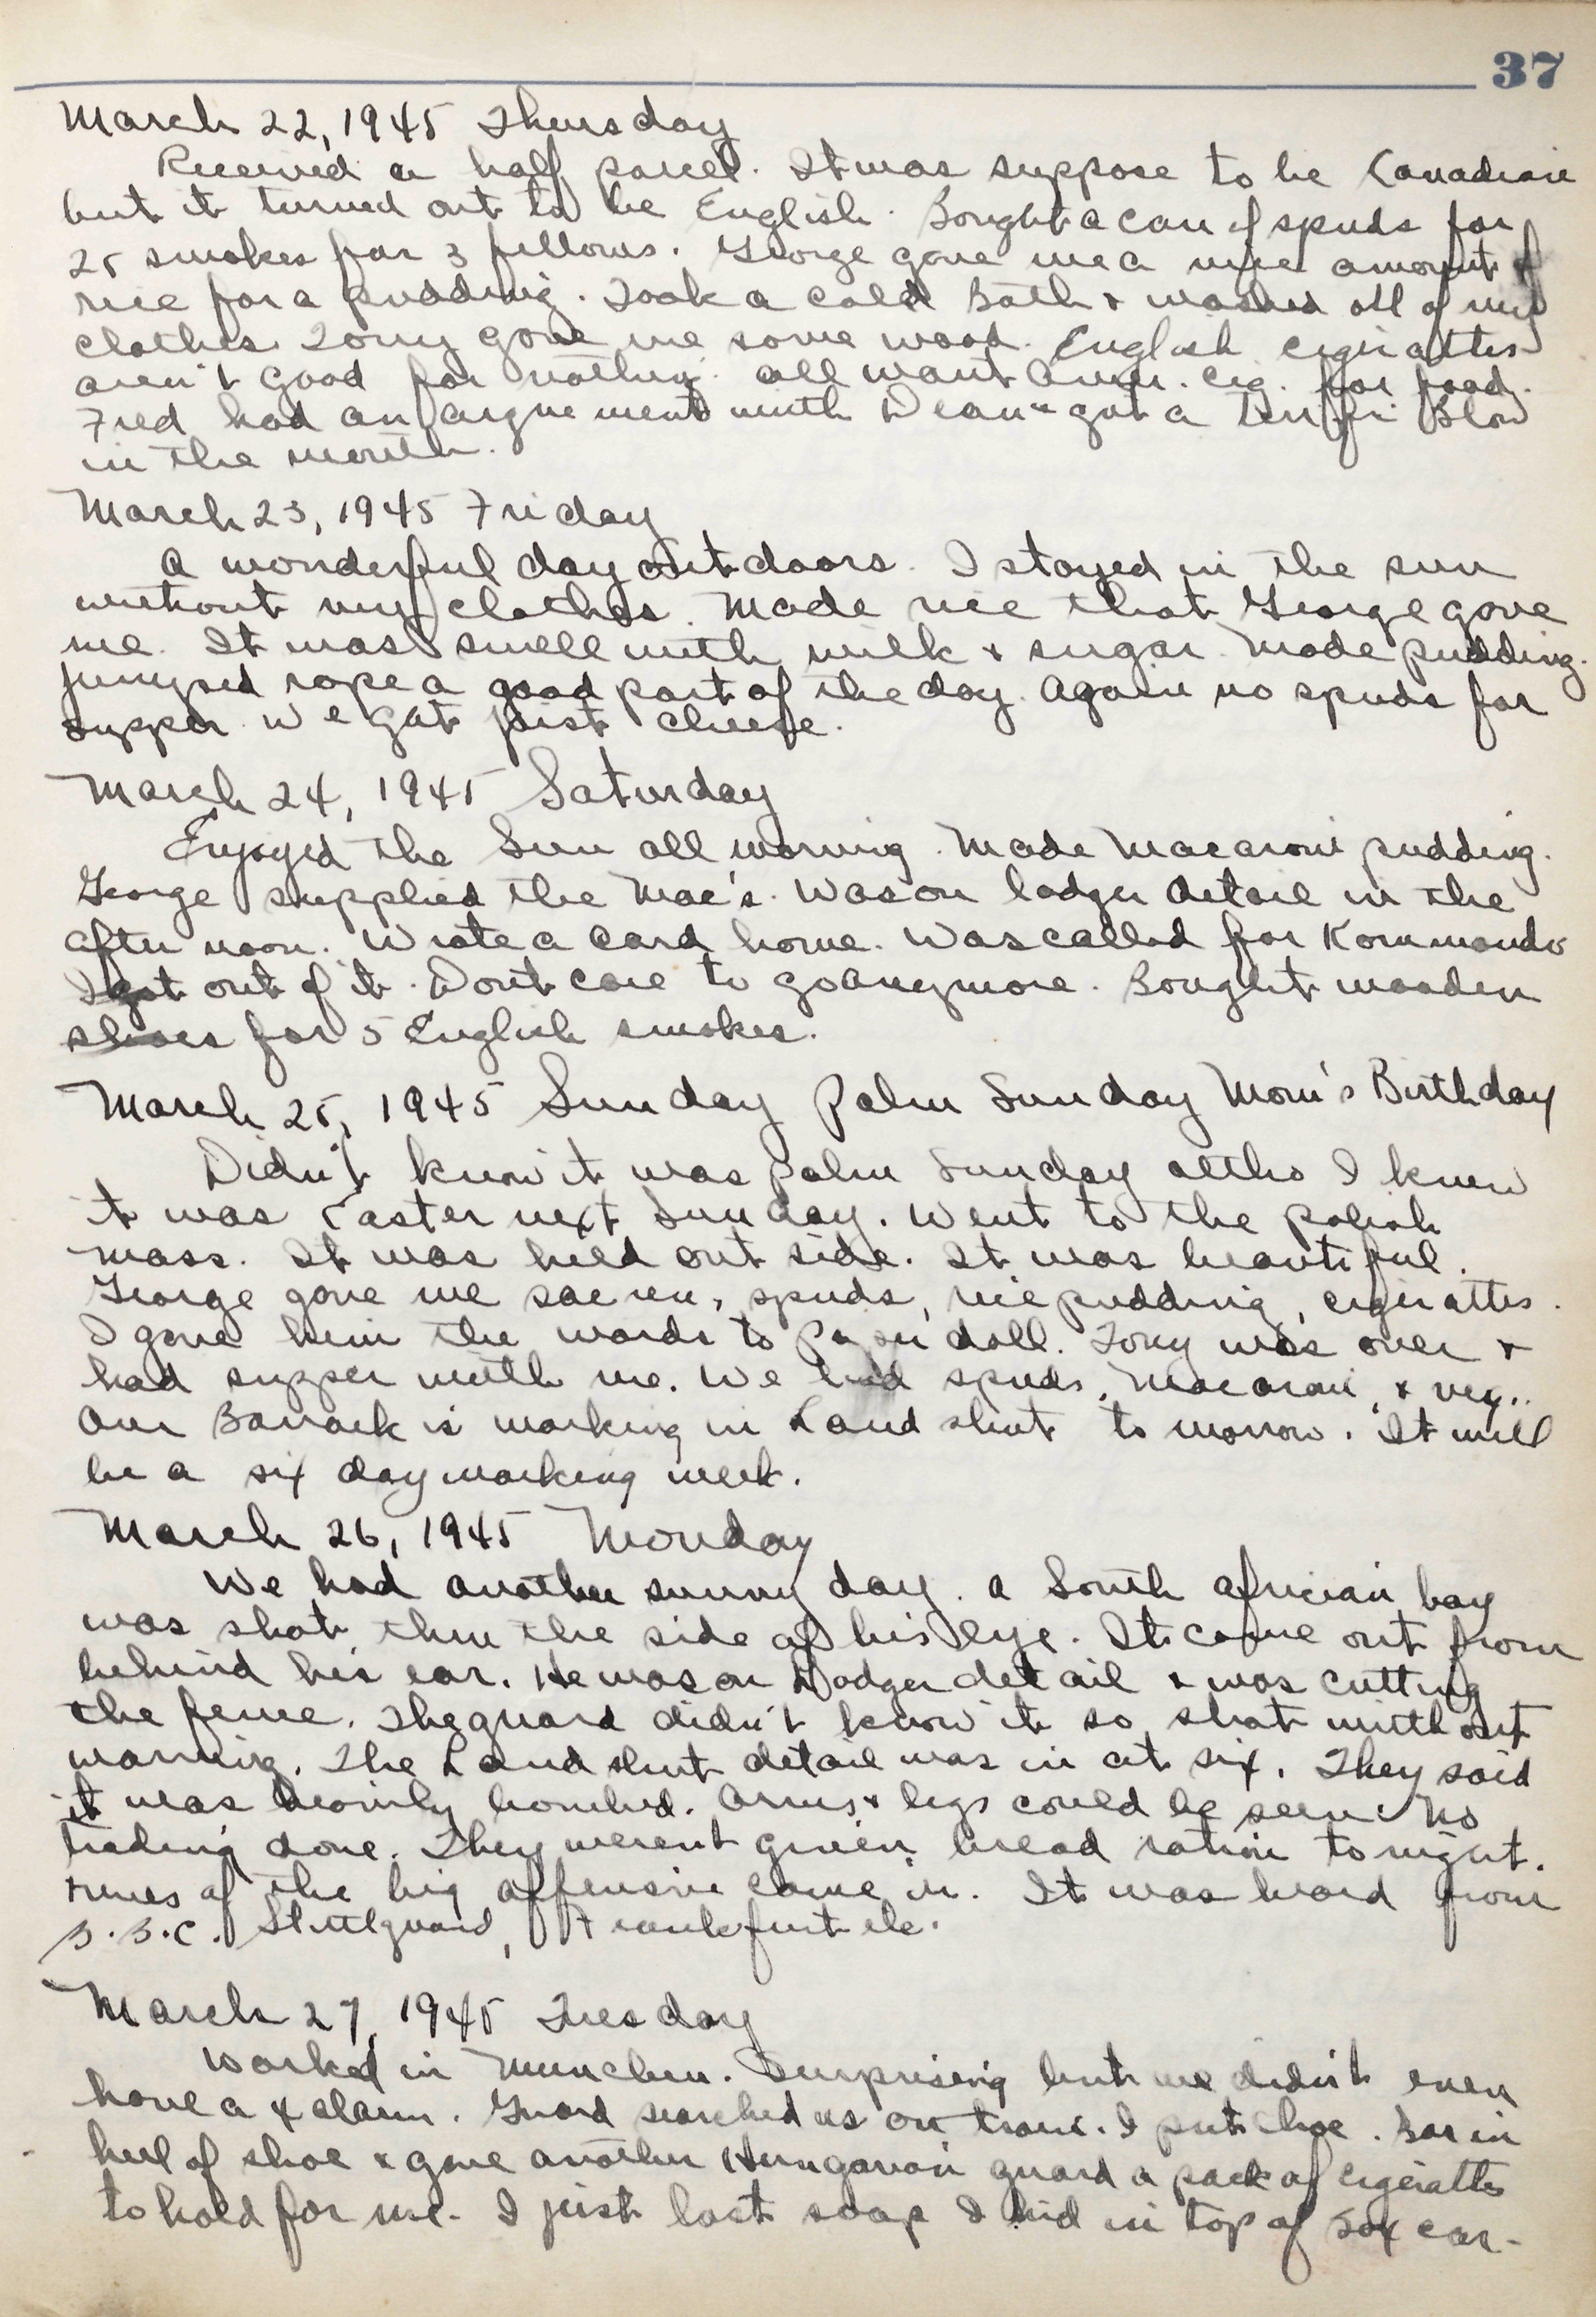 37
March 22, 1945 Thursday
Received a half parcel. It was suppose to be Canadian
but it turned out to be English. Bought a can of spuds for
25 smokes for 3 fellows. George gave me a nice amount of
rice for a pudding. Took a cold Bath & washed all of my
clothes. Tony gave me some wood. English cigirattes
aren't good for nothing. All want Amer. cig. for food.
Fred had an arguement with Dean & got a Terrific Blow
in the mouth.
March 23, 1945 Friday
A wonderful day outdoors. I stayed in the sun
without my clothes. Made rice that George gave
me. It was swell with milk & sugar. Made pudding.
Jumped rope a good part of the day. Again no spuds for
supper. We got just cheese.
March 24, 1945 Saturday
Enjoyed the Sun all morning. Made Macaroni pudding.
George supplied the Mac's. Was on lodger detail in the
after noon. Wrote a card home. Was called for Kommando
I got out of it. Dont care to go anymore. Bought wooden
shoes for 5 English smokes.
March 25, 1945 Sunday Palm Sunday Mom's Birthday
Didn't know it was palm Sunday altho I knew
it was Easter next Sunday. Went to the polish
mass. It was held out side. It was beautiful.
George gave me spuds, rice pudding, cigirattes.
I gave him the words to Paper doll. Tony was over &
had supper with me. We had spuds, Macaroni, & veg..
Our Barrack is working in Landshut to morrow. It will
be a six day working week.
March 26, 1945 Monday
We had another sunny day. A South african boy
was shot thru the side of his eye. It came out from
behind his ear. He was on Dodger detail & was cutting
the fence. The guard didn't know it so shot without
warning. The Landshut detail was in at six. They said
it was heavily bombed. Arms & legs could be seen. No
trading done. They werent given bread ration to night.
News of the big offensive came in. It was heard from
B.B.C. Stuttguard, Frankfurt etc.
March 27, 1945 Tuesday
Worked in Munchen. Surprising but we didn't even
have a alarm. Guard searched us on train. I put Choc. Bar in
heel of shoe & gave another Hungarian guard a pack of cigiratts
to hold for me. I just lost soap I hid in top of sox ear-